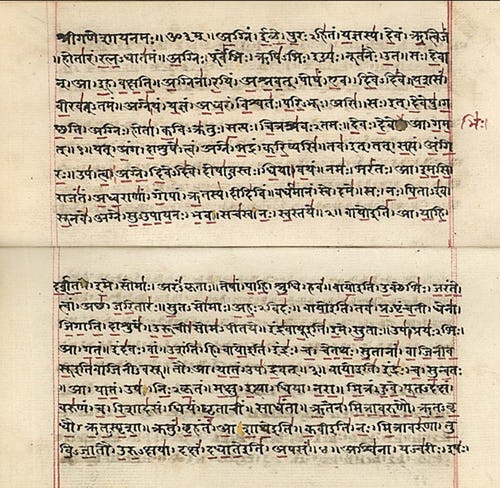 श्रीगणेशायनमः॥ॐ३म्॥ अग्निं। ईळे। पुरः२हितं। यज्ञस्य। देवं। ऋत्विजं
।होतारं। रत्न२धातमं। अग्निः। पूर्वेभिः। ऋषिभिः। ईड्यः। नूतनैः। उत। सः। देवा
न्। आ। इह। वक्षति। अग्निना। रयिं। अश्नवत्। पोषं। एव। दिवेदिवे। यशसं
वीरवत्२तमं। अग्ने। यं। यज्ञं। अध्वरं। विश्वतः। परि२भूः। असि। सः। इत्। देवेषु। ग
च्छति। अग्निः। होता। कवि२क्रतुः। सत्यः। चित्रश्रवः२तमः। देवः। देवे आ। गम
भिः।
त्॥१॥ यत्। अंग। दाशुषे। त्वं। अग्ने। भद्रं। करिष्यसि। तव। इत्। तत्। सत्यं। अंगि
रः। उप। त्वा। अग्ने। दिवेदिवे। दोषा२वस्तः। धिया। वयं। नमः। भरंतः। आ। इमसि।
राजंतं। अध्वराणां। गोपां। ऋतस्य। दीदिविं। वर्धमानं। स्वे। दमे। सः। नः। पिता२इव।
सूनवे। अग्ने। सु२उपायनः। भव। सचस्व। नः। स्वस्तये॥२॥ वायोइति। आ। याहि।
दर्शत। इमे। सोमाः। अरं२कृताः। तेषां। पाहि। श्रुधि। हवं। वायोइति। उक्थेभिः। जरंते।
त्वां। अच्छ। जरितारः। सुत२सोमाः। अहः२विदः। वायोइति। तव। प्र२पृंचती। धेना।
जिगाति। दाशुषे। उरूची। सोम२पीतये। इंद्रवायूइति। इमे। सुताः। उप। प्रयः२भिः।
आ। गतं। इंदवः। वां। उशंति। हि। वायोइति। इंद्रः। च। चेतथः। सुतानां। वाजिनीव
सूइतिवाजिनी२वसू। तौ। आ। यातं। उप। द्रवत्॥३॥ वायोइति। इंद्रः। च। सुन्वतः
।आ। यातं। उप। निः२कृतं। मक्षु। इत्था। धिया। नरा। मित्रं। हुवे। पूत२दक्षं।
वरुणं। च। रिशादसं। धियं। घृताचीं। साधंता। ऋतेन। मित्रावरुणौ। ऋत२वृ
धौ। ऋत२स्पृशा। क्रतुं। बृहंतं। आशाथेइति। कवीइति। नः। मित्रावरुणा। तु
वि२जातौ। उरु२क्षया। दक्षं। दधातेइति। अपसं॥४॥ अश्विना। यज्वरीः। इषः।